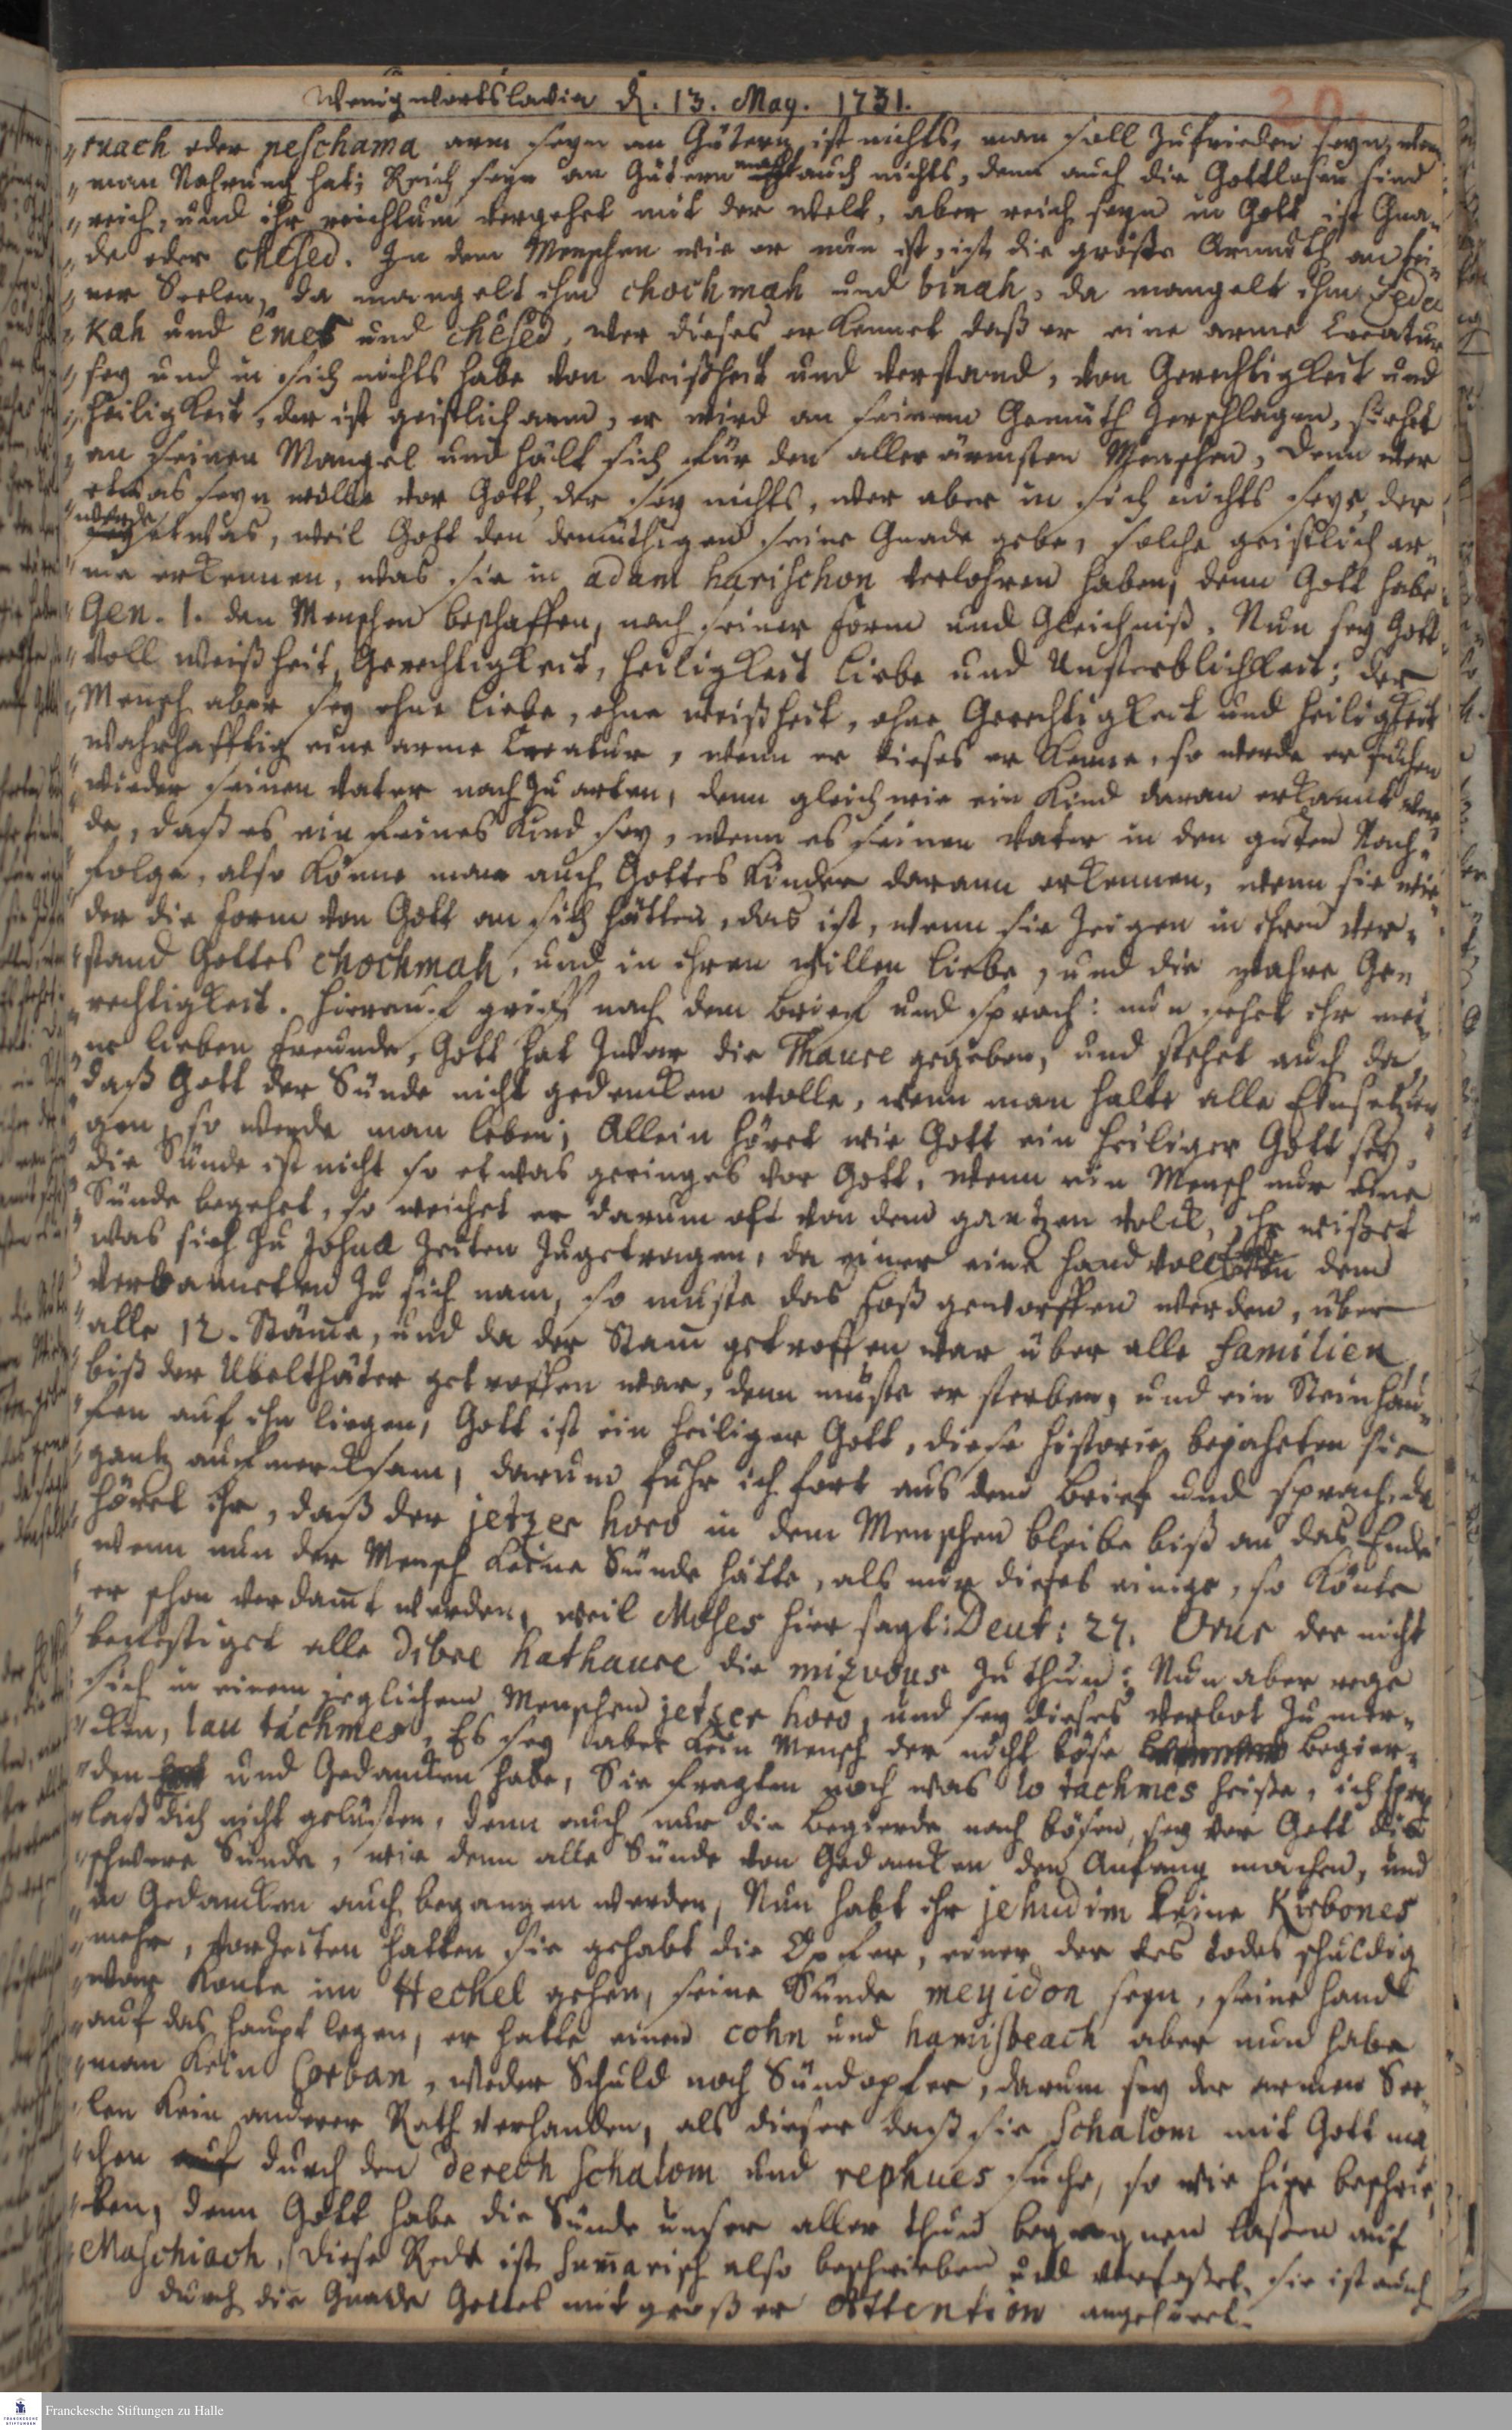 Wenigwortslavia d. 13. May. 1731.
20.
„ruach oder neschama arm seyn an Gütern ist nichts, man soll zufrieden seyn, wen
„man Nahrung hat; Reich seyn an Gütern macht auch nichts, denn auch die Gottlosen sind
„reich, und ihr reichtum vergehet mit der welt, aber reich seyn in Gott ist Gna„
„de oder chesed. In dem Menschen wie er nun ist, ist die gröste Armuth an sei„
„ner Seelen, da mangelt ihm chochmah und binah, da mangelt ihm Zeda
„kah und êmes und chêsed, wer dieses erkennet daß er eine arme Creatur
„sey und in sich nichts habe von weißheit und verstand, von Gerechtigkeit und
„heiligkeit, der ist geistlich arm, er wird an seinem Gemüth zerschlagen, siehet
„an seinen Mangel und hält sich für den aller ärmsten Menschen, denn wer
„etwas seyn wolle vor Gott, der sey nichts, wer aber in sich nichts seye, der
„werde etwas, weil Gott den demüthigen seine Gnade gebe, solche geistlich ar„
„me erkennen, was sie in adam harischon verlohren haben, denn Gott habe
„Gen. 1. den Menschen beschaffen, nach seiner form und Gleichniß. Nun sey Gott
„voll weißheit, Gerechtigkeit, heiligkeit liebe und Unsterblichkeit; der
„Mensch aber sey ohne liebe, ohne weißheit, ohne Gerechtigkeit und heiligkeit
„wahrhafftig eine arme Creatur, wenn er dieses erkenne, so werde er suchen
„wieder seinen vater nach zu arten, denn gleich wie ein Kind daran erkannt wer„
„de, daß es ein feines Kind sey, wenn es seinen vater in den guten Nach„
„folge, also könne man auch Gottes Kinder darann erkennen, wenn sie wie„
„der die form von Gott an sich hätten, das ist, wenn sie zeigen in ihrem ver„
„stand Gottes chochmah, und in ihren willen liebe, und die wahre Ge„
„rechtigkeit. hierauf grieff nach dem brief und sprach: nun sehet ihr mei„
„ne lieben freunde, Gott hat zwar die Thaure gegeben, und stehet auch da,
„daß Gott der Sünde nicht gedencken wolle, wenn man halte alle Einsetzun„
„gen, so werde man leben; Allein höret wie Gott ein heiliger Gott sey,
„die Sünde ist nicht so etwas geringes vor Gott, wenn ein Mensch nur eine
„Sünde begehet, so weichet er darum oft von dem gantzen volck, ihr wißet
„was sich zu Josua zeiten zugetragen, da einer eine hand voll von dem
„verbanneten zu sich nam, so muste das loß geworffen werden, über
„alle 12. Stäme, und da der Stam getroffen war über alle familien,
„biß der Ubelthäter getroffen war, denn muste er sterben, und ein Steinhau„
„fen auf ihn liegen, Gott ist ein heiliger Gott, diese historie bejaheten sie
„gantz aufmercksam, darum fuhr ich fort aus dem brief und sprach, da
„höret ihr, daß der jetzer horo in dem Menschen bleibe biß an das Ende
„wenn nun der Mensch keine Sünde hätte, als nur dieses einige, so könte
„er schon verdamt werden, weil Moses hier sagt: Deut: 27. Orur der nicht
„befestiget alle dibre hathaure die mizvous zu thun; Nun aber rege
„sich in einem jeglichem Menschen jetzer horo, und sey dieses verbot zu mer„
„cken, lau tachmes, Es sey aber kein Mensch der nicht böse begier„
„den und Gedancken habe, Sie fragten noch was lo tachmes heiße, ich sprach
„laß dich nicht gelüsten, denn auch nur die begierde nach bösen, sey vor Gott die
„schwere Sünde, wie denn alle Sünde von Gedancken den Anfang machen, und
„in Gedancken auch begangen werden, Nun habt ihr jehudim keine Korbones
„mehr, vorzeiten hatten sie gehabt die Opfer, einer der des todes schuldig
„war konte im Hechel gehen, seine Sünde meyidon seyn, seine hand
„auf das haupt legen, er hatte einen cohn und hamisbeach aber nun habe
„man kein Corban, weder Schuld noch Sündopfer, darum sey der armen See„
„len kein anderer Rath verhanden, als dieser daß sie Schalom mit Gott ma
„chen auf durch den derech schalom und rephues suche, so wie hier beschrie„
„ben, denn Gott habe die Sünde unser aller thun begegnen laßen auf
„Maschiach. (Diese Rede ist sumarisch also beschrieben und verfaßet, sie ist auch
durch die Gnade Gottes mit großer Attention angehöret.
Franckesche Stiftungen zu Halle